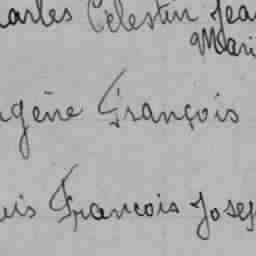 harles Celestin Jea
Mari
ugène François
uis Francois Josep